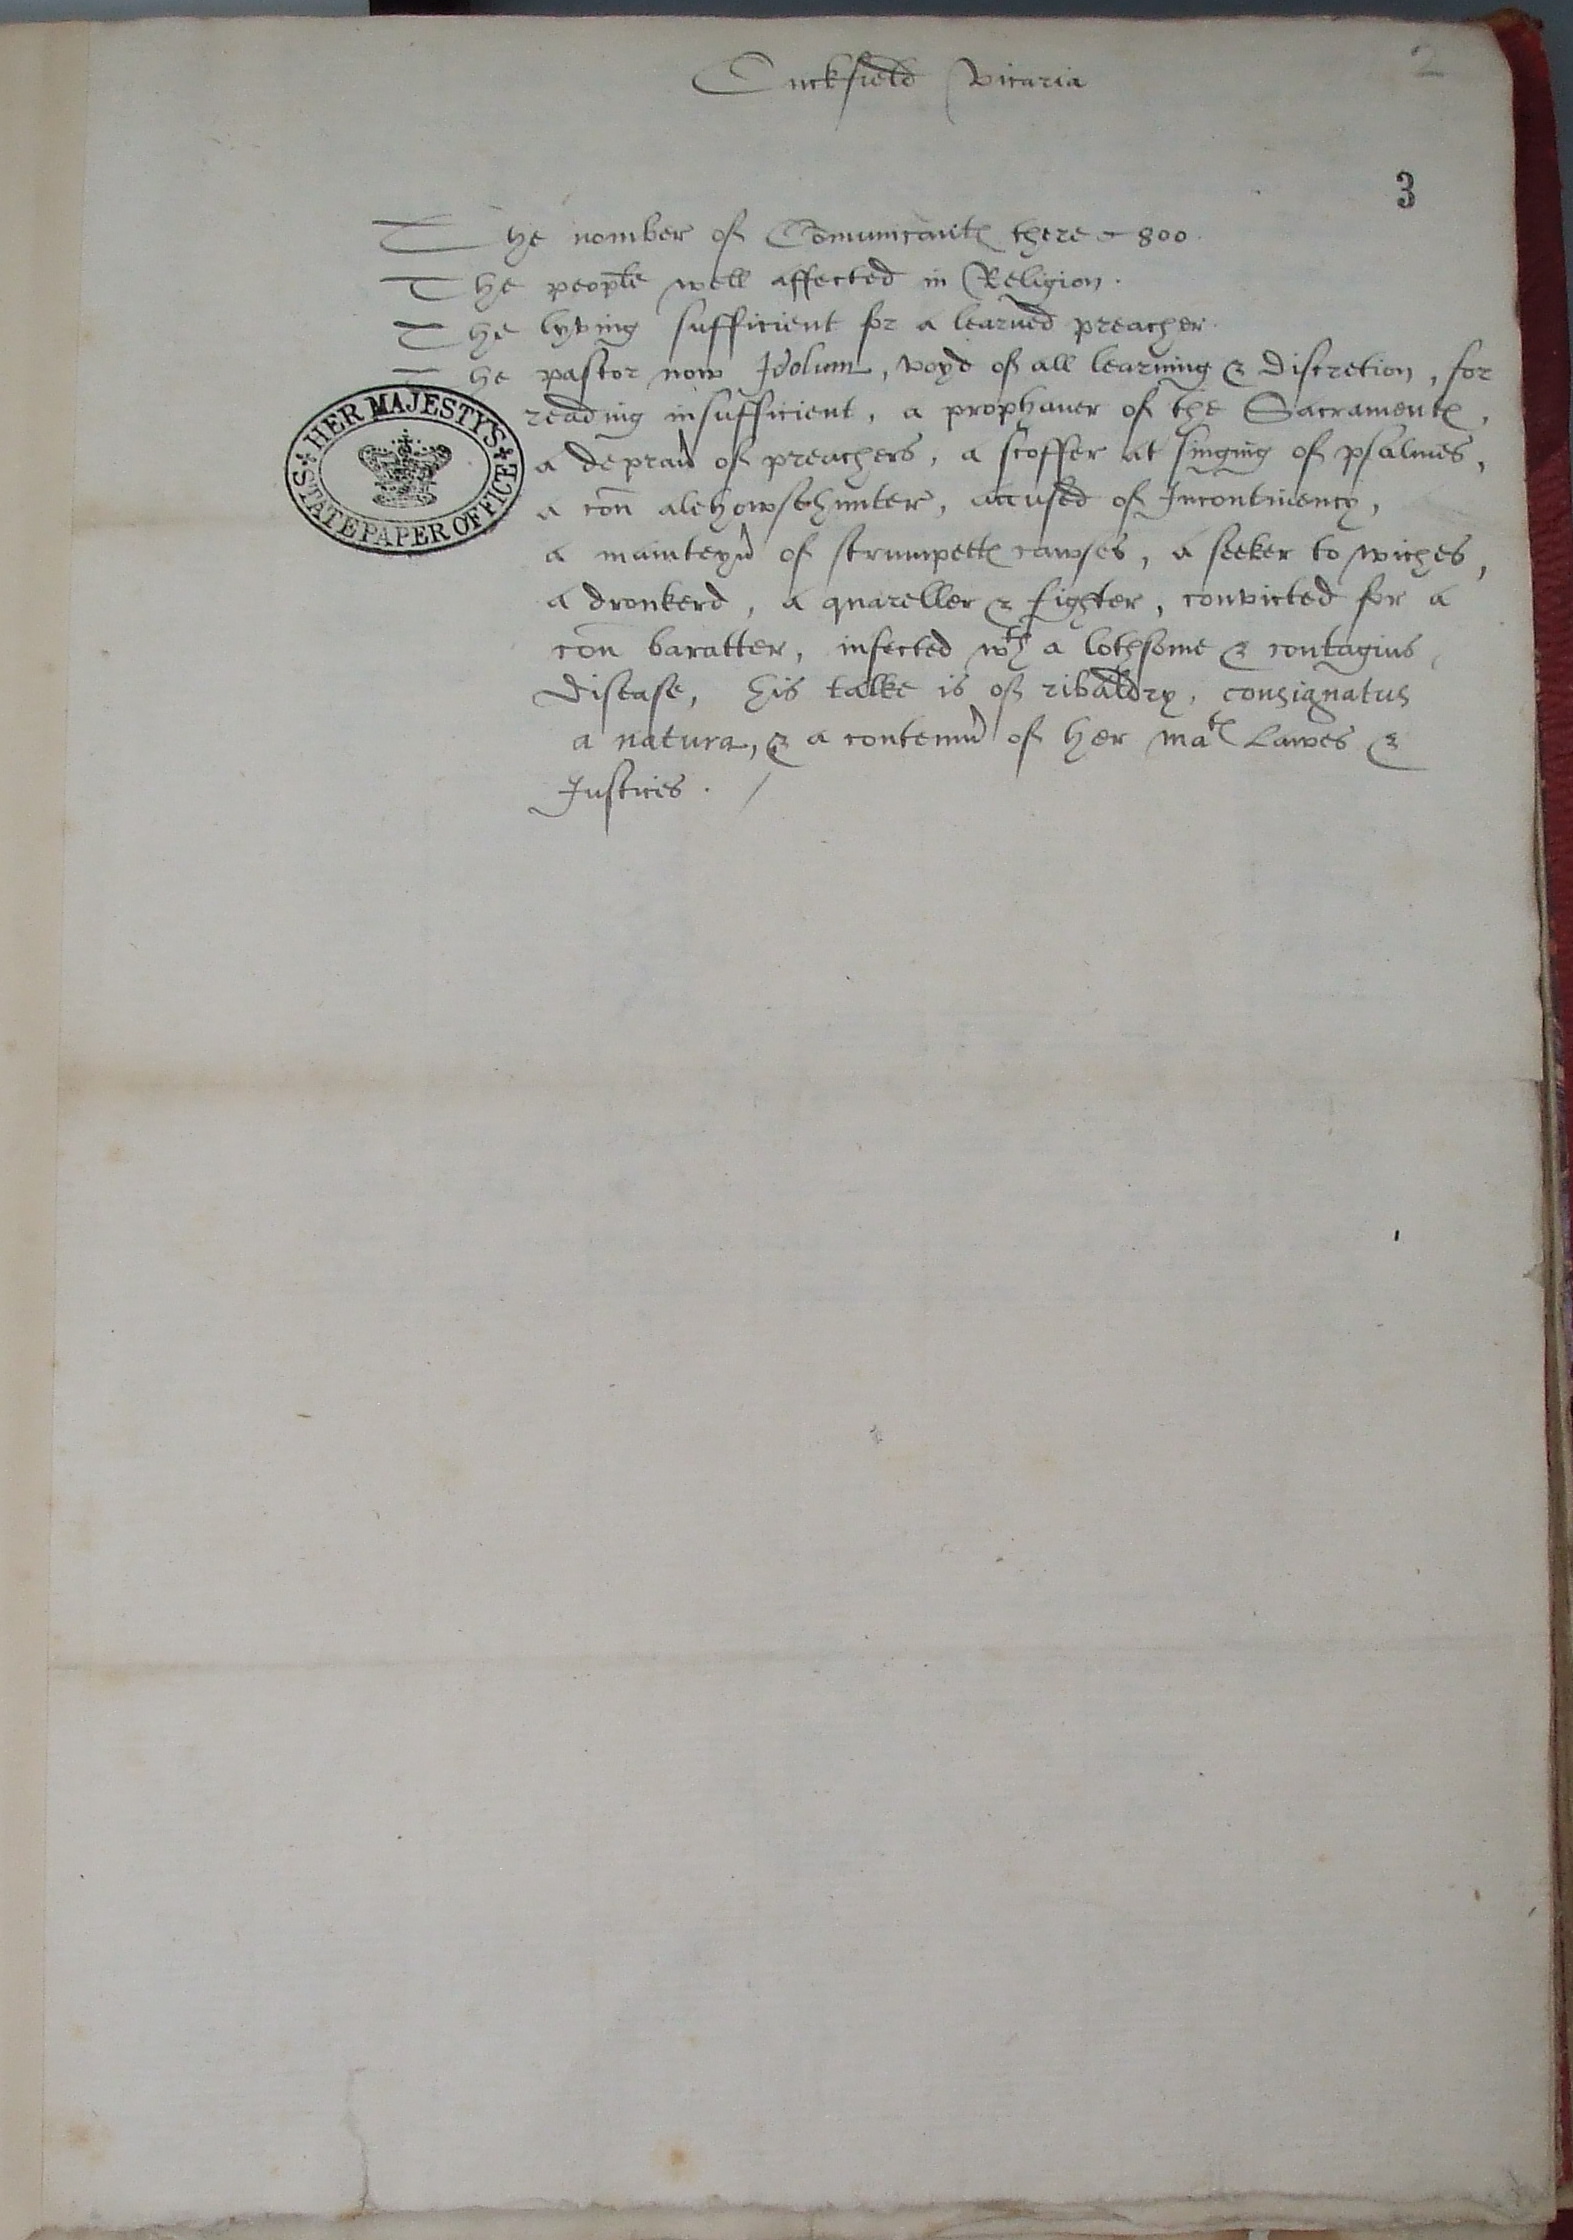 Cuckfield Vicaria
2
3
The nomber of Comunicantes there - 800.
The people well affected in Religion.
The lyving sufficient for a learned preacher.
The pastor now Idolum, voyd of all learning & discretion, for
reading insufficient, a prophaner of the Sacramentes,
a depraver of preachers, a scoffer at singing of psalmes,
a con alehowsehunter, accused of Incontinency,
a mainteyner of strumpettes cawses, a seeker to wiches,
a dronkerd, a quareller & fighter, convicted for a
con baratter, infected wth a lothsome & contagius
disease, his talke is of ribaldry, consignatus
a natura, & a contemner of her mates Lawes &
Justices. /
HER MAJESTY'S
STATE PAPER OFFICE